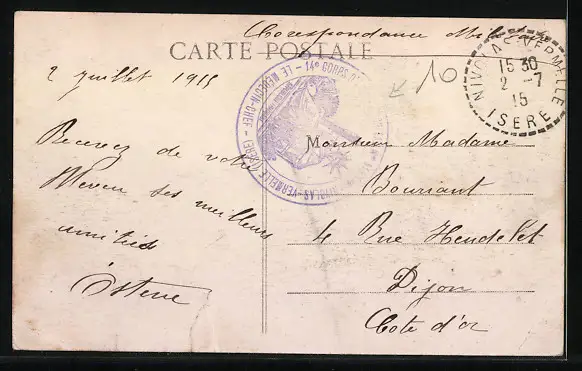 Correspondance Militaire
CARTE POSTALE
2 juillet 1915
Recevez de votre
Neveu ses meilleurs
amitiés
10
Monsieur Madame
Bourrant
4 Rue Heudelet
Dijon
Cote d'or
NIVOLAS-VERMELLE
15 30
2 -7
15
ISERE
14e CORPS
LE MEDECIN-CHEF
NIVOLAS-VERMELLE (ISERE)